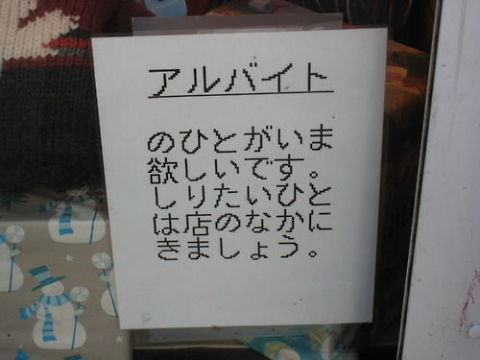 アルバイト
のひとがいま
欲しいです。
しりたいひと
は店のなかに
きましょう。